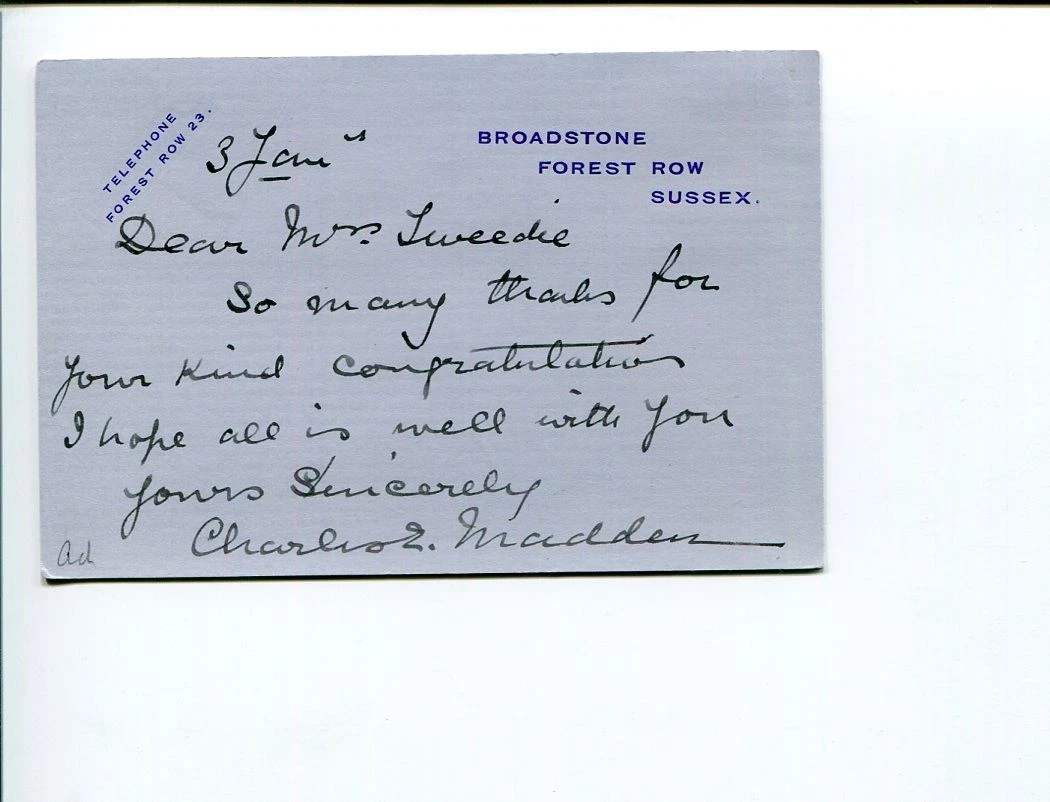 TELEPHONE
FOREST ROW 23.
BROADSTONE
FOREST ROW
SUSSEX.
3 Jany
Dear Mrs. Tweedie
So many thanks for
your kind congratulations
I hope all is well with you
Yours Sincerely
Charles E. Madden
Ad